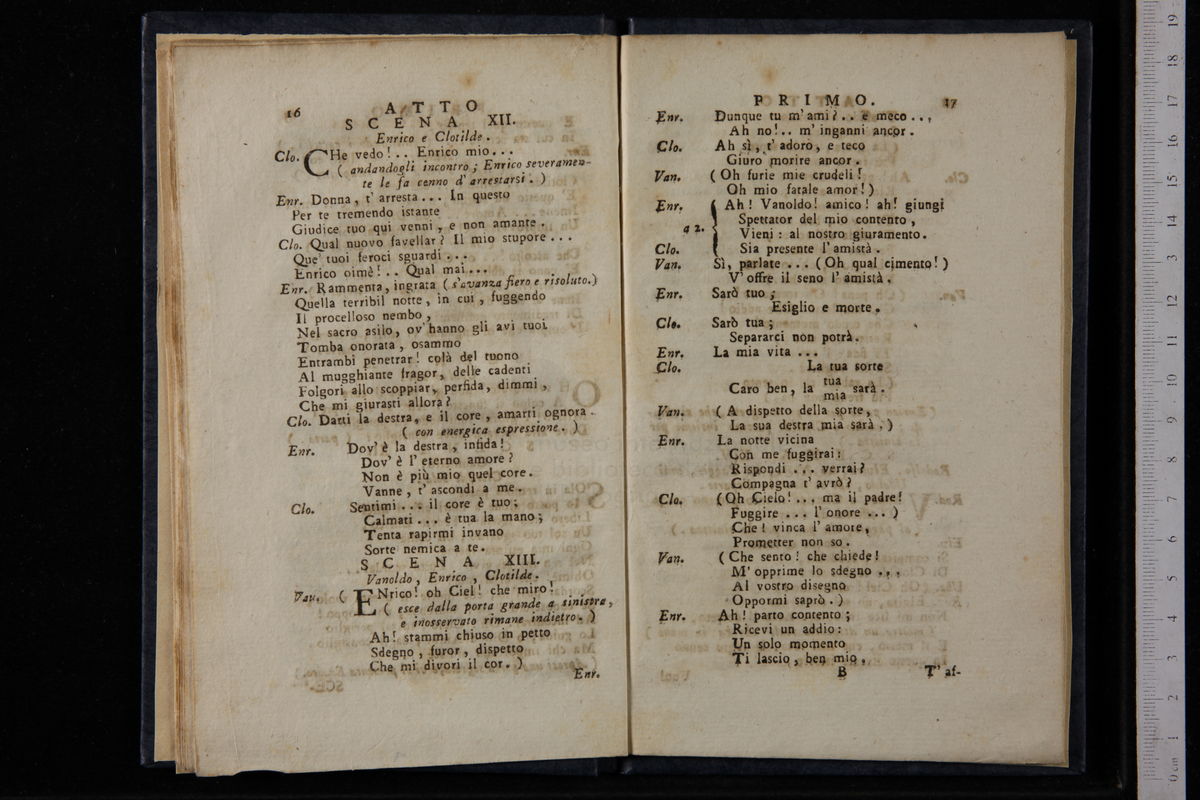 16
ATTO
SCENA XII.
Enrico e Clotilde.
Clo. CHe vedo!.. Enrico mio...
( andandogli incontro; Enrico severamen-
te le fa cenno d'arrestarsi. )
Enr. Donna, t'arresta... In questo
Per te tremendo istante
Giudice tuo qui venni, e non amante.
Clo. Qual nuovo favellar? Il mio stupore...
Que' tuoi feroci sguardi...
Enrico oimè!.. Qual mai...
Enr. Rammenta, ingrata ( s'avanza fiero e risoluto.)
Quella terribil notte, in cui, fuggendo
Il procelloso nembo,
Nel sacro asilo, ov'hanno gli avi tuoi
Tomba onorata, osammo
Entrambi penetrar! colà del tuono
Al mugghiante fragor, delle cadenti
Folgori allo scoppiar, perfida, dimmi,
Che mi giurasti allora?
Clo. Darti la destra, e il core, amarti ognora.
( con energica espressione. )
Enr. Dov'è la destra, infida!
Dov'è l'eterno amore?
Non è più mio quel core.
Vanne, t'ascondi a me.
Clo. Sentimi... il core è tuo;
Calmati... è tua la mano;
Tenta rapirmi invano
Sorte nemica a te.
SCENA XIII.
Vanoldo, Enrico, Clotilde.
Van. ( ENrico! oh Ciel! che miro!
( esce dalla porta grande a sinistra,
e inosservato rimane indietro. )
Ah! stammi chiuso in petto
Sdegno, furor, dispetto
Che mi divori il cor. )
Enr.
PRIMO. 17
Enr. Dunque tu m'ami?.. e meco...
Ah no!.. m'inganni ancor.
Clo. Ah sì, t'adoro, e teco
Giuro morire ancor.
Van. (Oh furie mie crudeli!
Oh mio fatale amor!)
Enr. Ah! Vanoldo! amico! ah! giungi
Spettator del mio contento,
a 2. Vieni: al nostro giuramento.
Clo. Sia presente l'amistà.
Van. Sì, parlate... (Oh qual cimento!)
V'offre il seno l'amistà.
Enr. Sarò tuo;
Esiglio e morte.
Clo. Sarò tua;
Separarci non potrà.
Enr. La mia vita...
Clo. La tua sorte
Caro ben, la tua mia sarà.
Van. ( A dispetto della sorte,
La sua destra mia sarà. )
Enr. La notte vicina
Con me fuggirai:
Rispondi... verrai?
Compagna t'avrò?
Clo. (Oh Cielo!... ma il padre!
Fuggire... l'onore... )
Che! vinca l'amore,
Prometter non so.
Van. (Che sento! che chiede!
M'opprime lo sdegno...
Al vostro disegno
Oppormi saprò. )
Enr. Ah! parto contento;
Ricevi un addio:
Un solo momento
Ti lascio, ben mio,
B T'af-